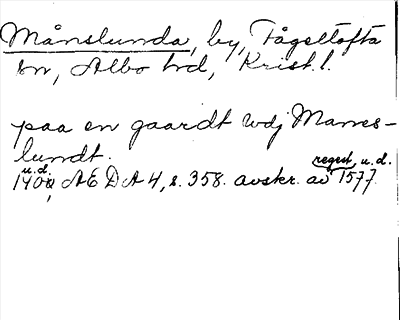 Månslunda, by, Fågeltofta
sn, Albo hd, Krist. l.
paa en gaardt wdj Manes-
lundt.
u.d. regest, u.d.
1400, ÆDA 4, s. 358. avskr. av 1577